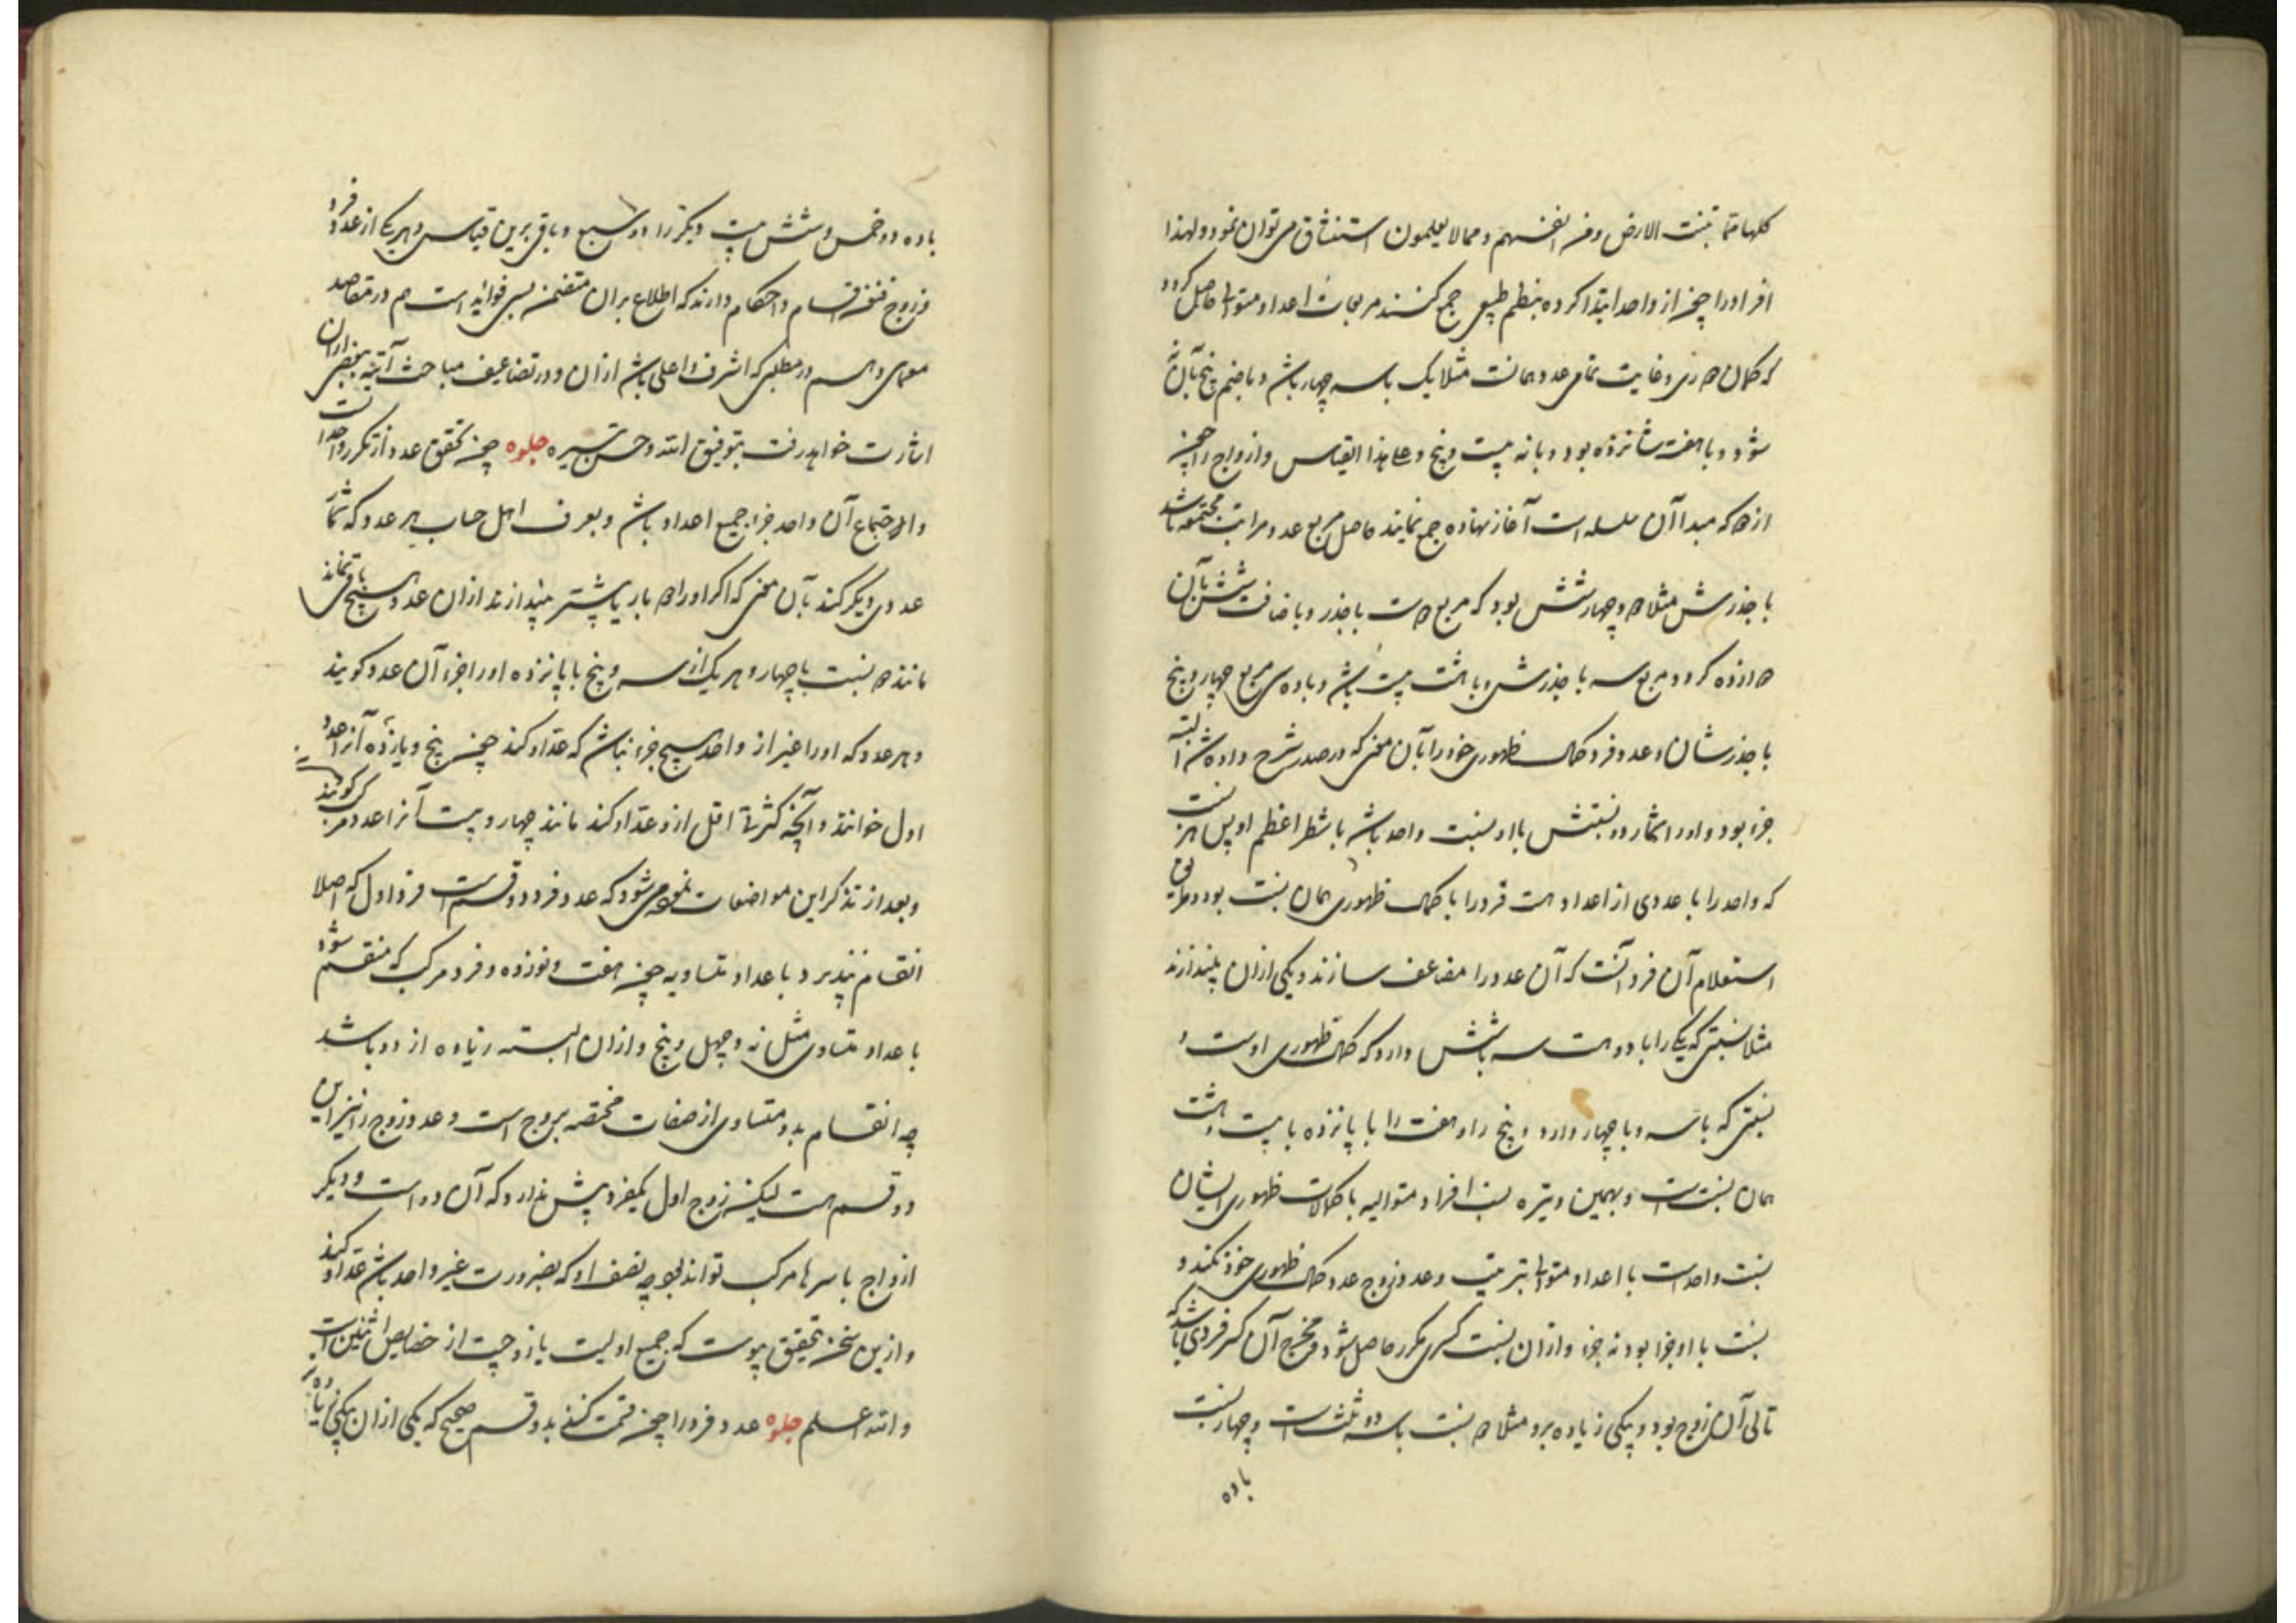 کلها مما تنبت الارض ومن انفسهم ومما لا یعلمون استنشاق می توان نمود و لهذا
افراد را چون از واحد ابتدا کرده بنظم طبیعی جمع کنند مربعات اعداد متوالیه حاصل کردد
که کمال صوری و غایت تمامی عدد همانست مثلا یک با سه چهار باشد و با ضم پنج بآن نه
شود و با هفت شانزده بود و با نه بیست و پنج و علی هذا القیاس و ازواج را چون
از دو که مبدا آن سلسله است آغاز نهاده جمع نمایند حاصل مربع عدد مراتب مجتمعه باشد
با جذرش مثلا دو و چهار شش بود که مربع دو است با جذر و باضافت شش بآن
دوازده کردد مربع سه با جذرش و با هشت بیست باشد و با ده سی مربع چهار و پنج
با جذرشان و عدد فرد کمال ظهوری خود را بآن معنی که در صدر شرح داده شد البته
جزء بود و او را شمارد و نسبتش با او نسبت واحد باشد با شطر اعظم او پس هر نسبت
که واحد را با عددی از اعداد هست فرد را با کمال ظهوری همان نسبت بود و طریق
استعلام آن فرد آنست که آن عدد را مضاعف سازند و یکی ازان بیندازند
مثلا نسبتی که یک را با دو هست سه با شش دارد که کمال ظهوری اوست و
نسبتی که با سه و با چهار دارد و پنج را و هفت را با پانزده با بیست و هشت
همان نسبت است و بهمین وتیره نسب افراد متوالیه با کمالات ظهوری ایشان
نسبت واحد است با اعداد متوالیه بترتیب و عدد زوج عدد کمال ظهوری خود نکند و
نسبت با او جزا بود نه جزء و ازان نسبت کسری مکرر حاصل شود و مخرج آن کسر فردی باشد که
تالی آن زوج بود و بیکی زیاده برو مثلا دو نسبت با سه دو ثلث است و چهار نسبت
با ده
با ده دو خمس و شش بیست و یکرا دو سبع و باقی برین قیاس و هر یک از عدد فرد
و زوج فنون اقسام و احکام دارند که اطلاع بران متضمن بسی فواید است هم در مقاصد
معمای و هم در مطلبی که اشرف و اعلی باشد ازان و در تضاعیف مباحث آتیه ببعضی ازان
اشارت خواهد رفت بتوفیق الله و حسن تیسیره جلوه چون تحقق عدد از تکرر واحد است
و اجتماع آن واحد جزء جمیع اعداد باشد و بعرف اهل حساب هر عدد که شمار
عددی دیکر کند بآن معنی که اکر او را دو بار یا بیشتر بیندازند ازان عدد هیچ باقی نماند
مانند دو نسبت با چهار و هر یک از سه و پنج با پانزده او را جزء آن عدد کویند
و هر عدد که او را غیر از واحد هیچ جزء نباشد که عدّ او کند چون پنج و یازده آنرا عدد
اول خوانند و آنچه کثرتی اقل ازو عدّ او کند مانند چهار و بیست آنرا عدد مرکب کویند
و بعد از تذکر این مواضعات نموده می شود که عدد فرد دو قسم است فرد اول که اصلا
انقسام نپذیرد باعداد متساویه چون هفت و نوزده و فرد مرکب که منقسم شود
باعداد متساوی مثل نه و چهل و پنج و ازان البته زیاده از دو باشد
چه انقسام بدو متساوی از صفات مختصه بزوج است و عدد زوج را نیز این
دو قسم هست لیکن زوج اول یکفرد بیش ندارد که آن دو است و دیکر
ازواج باسرها مرکب توانند بود چه نصف او که بضرورت غیر واحد باشد عدّ او کند
و ازین سخن بتحقیق پیوست که جمیع اولیت با زوجیت از خصایص اثنین است
والله اعلم جلوه عدد فرد را چون قسمت کنی بدو قسم صحیح که یکی ازان بیکی زیاده